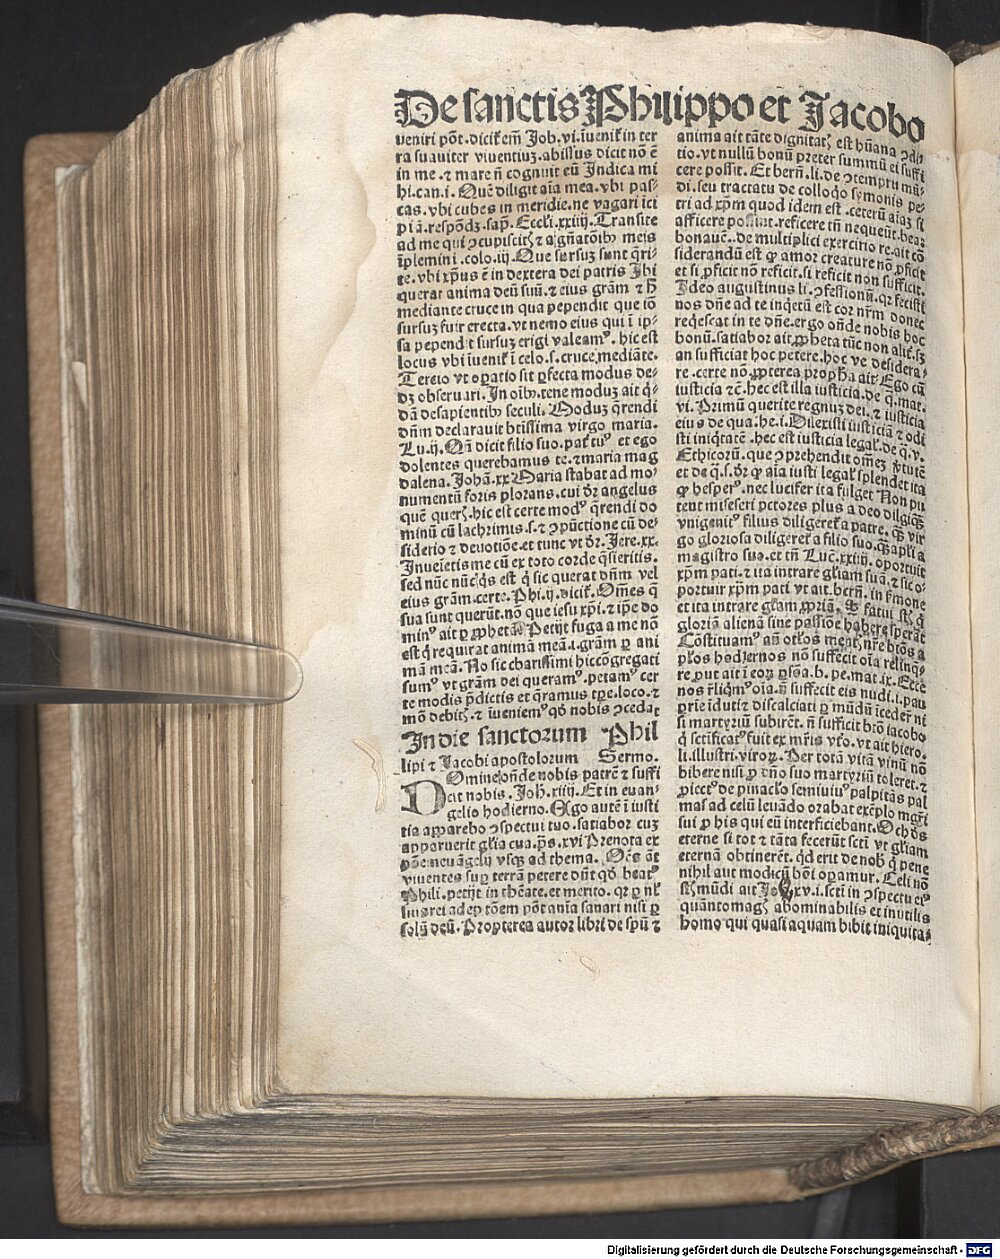 De sanctis Philippo et Jacobo
ueniri pōt. dicit em̄ Job. vi. īuenit̄ in ter
ra suauiter viuentiuz. abissus dicit nō ē
in me. ⁊ mare n̄ cognuit eū Indica mi
hi. can. i. Quē diligit aīa mea. vbi pas-
cas. vbi cubes in meridie. ne vagari ici
piā. respōdz. sap. Eccli. xxiiij. Transite
ad me qui ɔcupiscitꝭ ⁊ a gn̄atōibꝰ meis
īplemini. colo. iij. Que sursuz sunt q̄ri-
te. vbi xp̄us ē in dextera dei patris Ibi
querat anima deū suū. ⁊ eius grām ⁊ h̄
mediante cruce in qua pependit que iō
sursuz fuit erecta. vt nemo eius qui ī ip-
sa pependit sursuz erigi valeamꝰ. hic est
locus vbi īuenit̄ ī celo. s. cruce mediāte.
Tercio vt oꝑatio sit ꝑfecta modus de-
dz obseruari. In oībꝰ tene moduz ait q̄-
dā de sapientibꝰ seculi. Moduz q̄rendi
dn̄m declarauit btīssima virgo maria.
Lu. ij. Qn̄ dicit filio suo. pat̄ tuꝰ et ego
dolentes querebamus te. ⁊ maria mag
dalena. Johā. xx Maria stabat ad mo-
numentū foris plorans. cui dr̄ angelus
quē querꝭ. hic est certe modꝰ q̄rendi do
minū cū lachrimis. s. ⁊ ɔpūctione cū de-
siderio ⁊ deuotiōe. et tunc vt dr̄. Jere. xx.
Inuenietis me cū ex toto corde q̄sieritis.
sed nūc nūc q̄s est q̄ sic querat dn̄m vel
eius grām. certe. Phi. ij. dicit̄. Om̄es q̄
sua sunt querūt. nō que iesu xp̄i. ⁊ ip̄e do
minꝰ ait ꝑ ꝓphetā Perijt fuga a me nō
est q̄ requirat animā meā. i. grām ꝑ ani
mā meā. No sic charissimi hic cōgregati
sumꝰ vt grām dei queramꝰ. petamꝰ cer
te modis p̄dictis et q̄ramus tꝑe. loco. ⁊
mō debitꝭ. ⁊ īueniemꝰ qd̄ nobis ɔcedat
In die sanctorum Phil
lipi ⁊ Jacobi apostolorum Sermo.
Domine on̄de nobis patrē ⁊ suffi
cit nobis. Joh. xiiij. Et in euan-
gelio hodierno. Ego autē ī iusti
tia apparebo ɔspectui tuo. satiabor cuz
apparuerit gl̄ia tua. p̄s. xvi Prenota ex
viuentes suꝑ terrā petere dn̄t qd̄ beatꝰ
Phili. petijt in the̅ate. et merito. qꝛ ꝑ nł
solū deū. Propterea autor libri de spū ⁊
anima ait tāte dignitatꝭ est hūana ɔdi-
tio. vt nullū bonū preter summū ei suffi
cere possit. Et bern̄. li. de ɔtemptu mū-
di. seu tractatu de colloq̄o symonis pe-
tri ad xp̄m quod idem est. ceterū
afficere possunt. reficere tn̄ nequeūt.
bonauē. de multiplici exercitio re. ait cō
siderandū est ꝙ amor creature nō ꝓficit
et si ꝓficit nō reficit. si reficit non sufficit.
Ideo augustinus li. ɔfessionū. qꝛ fecisti
nos dn̄e ad te inq̄etū est cor nr̄m donec
req̄escat in te dn̄e. ergo on̄de nobis hoc
bonū. satiabor ait ꝓpheta tūc non alit̄. sz
an sufficiat hoc petere. hoc ve desidera-
re. certe nō. ꝓpterea propha ait Ego cū
iusticia ⁊c̄. hec est illa iusticia. de q̄. mat.
vi. Primū querite regnuz dei. ⁊ iusticiā
eius de qua. he. i. Dilexisti iusticiā ⁊ odi
sti iniq̄tatē. hec est iusticia legał. de q̄. v.
Ethicorū. que ɔprehendit om̄ez v̄tutē
et de q̄. s. dr̄ ꝙ aīa iusti legał splendet ita
ꝙ hesperꝰ. nec lucifer ita fulget Non pu
tent miseseri pctores plus a deo diligi qz̄
vnigenitꝰ filius diligeret̄ a patre. qz̄ vir
go gloriosa diligeret̄ a filio suo. qz̄ apłi a
magistro suo. et tn̄ Luc̄. xxiiij. oportuit
xp̄m pati. ⁊ ita intrare gl̄iam suā. ⁊ sic o-
portuit xp̄m pati vt ait. bern̄. in ẜmone
et ita intrare gl̄am ꝓpriā. fatui
gloriā alienā sine passiōe habere sperāt
Cōstituamꝰ an̄ oc̄los mentꝭ nr̄e btōs a
pl̄os hodiernos nō suffecit oīa relinq̄-
re put ait ī eoꝝ ꝑsōa. b. pe. mat. ix. Ecce
nos reliq̄mꝰ oīa. n̄ suffecit eis nudi. i. pau
ꝑrie īduti ⁊ discalciati ꝑ mūdū īcedere ni
si martyriū subirēt. n̄ sufficit btō iacobo
q̄ sctificatꝰ fuit ex mr̄is vt̄o. vt ait hiero.
li. illustri. viroꝝ. Per totā vitā vinū nō
bibere nisi ꝓ dn̄o suo martyriū toleret. ⁊
ꝓiectꝰ de pinaclo semiuiuꝰ palpitās pal
mas ad celū leuādo orabat exēplo mgr̄i
sui ꝓ his qui eū interficiebant. O ch̄ ds̄
eterne si tot ⁊ tāta fecerūt sctī vt gl̄iam
eternā obtinerēt. qd̄ erit de nobꝭ q̄ pene
nihil aut modicū bōi oꝑamur. Celi nō
st̄ mūdi ait Job. xv. i. sctī in ɔspectu eiꝰ
quāto magꝭ abominabilis et inutilis
homo qui quasi aquam bibit iniquita-
Digitalisierung gefördert durch die Deutsche Forschungsgemeinschaft - DFG